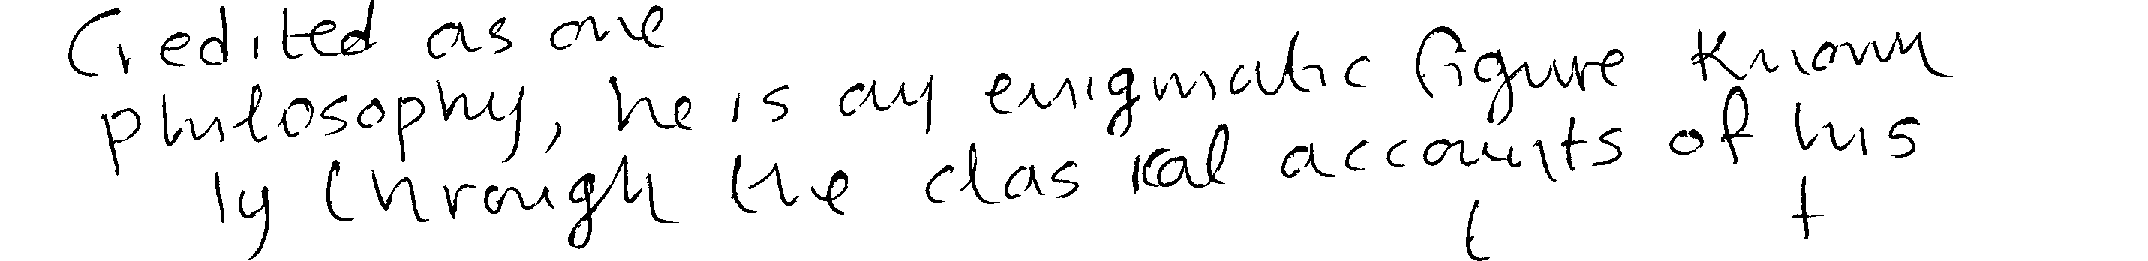 Credited as one
philosophy, he is an enigmatic figure known
ly through the clas ical accounts of his